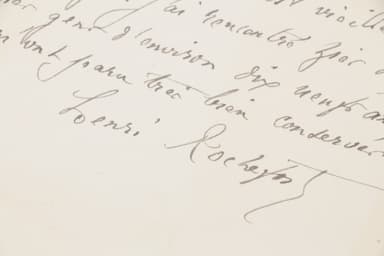 j'ai rencontré hier
gens d'environ dix neuf an
ont paru très bien conserver
Henri Rochefort